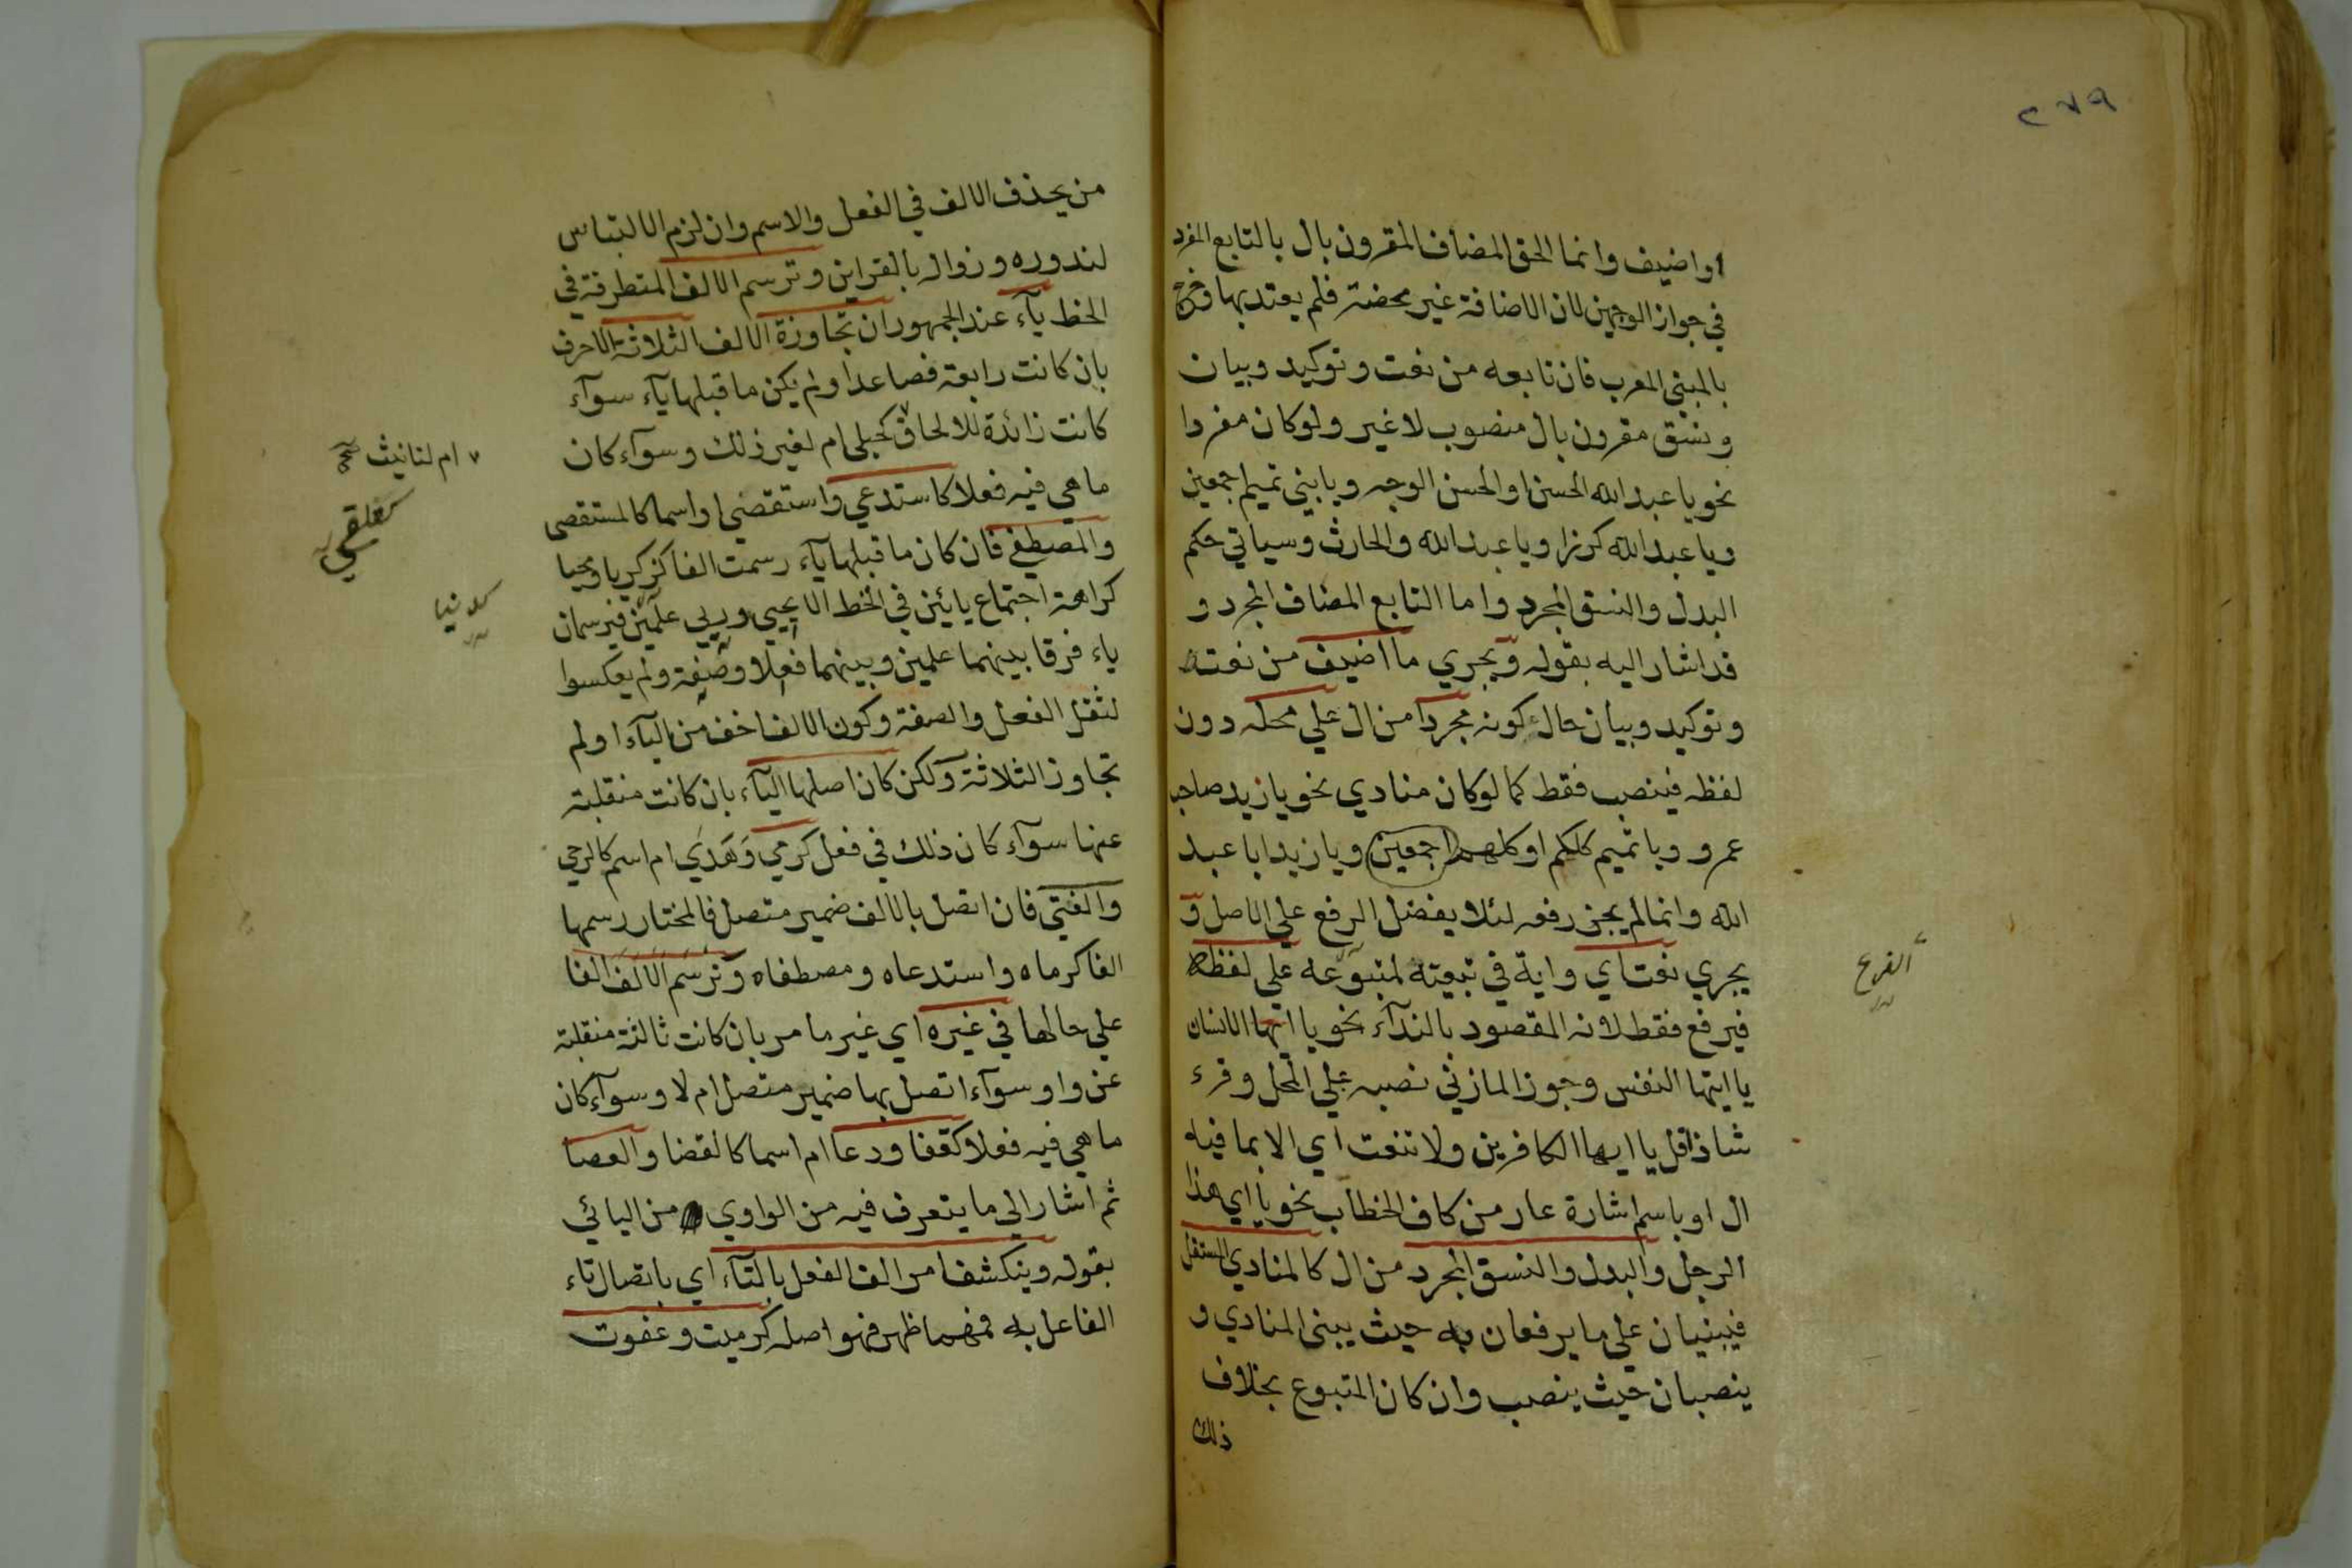 ٢٧٩
او اضيف وانما الحق المضاف المقرون بال بالتابع المفرد
في جواز الوجهين لان الاضافة غير محضة فلم يعتد بها وخرج
بالمبني المعرب فان تابعه من نعت وتوكيد وبيان
ونسق مقرون بال منصوب لا غير ولو كان مفردا
نحو يا عبد الله الحسن او الحسن الوجه ويا بني تميم اجمعين
ويا عبد الله كرزا ويا عبد الله والحارث وسياتي حكم
البدل والنسق المجرد واما التابع المضاف المجرد و
قد اشار اليه بقوله ويجري ما اضيف من نعته
وتوكيد وبيان حال كونه مجردا من ال علي محله دون
لفظه فينصب فقط كما لو كان منادي نحو يا زيد صاحب
عمرو ويا تميم كلكم او كلهم اجمعين ويا زيد ابا عبد
الله وانما لم يجز رفعه لئلا يفضل الرفع علي الاصل و
الفرع
يجري نعت اي واية في تبعيته لمتبوعه علي لفظه
فيرفع فقط لانه المقصود بالندآء نحو يا ايها الانسان
يا ايتها النفس وجوز المازني نصبه علي المحل وقرء
شاذا قل يا ايها الكافرين ولا تنعت اي الا بما فيه
ال او باسم اشارة عار من كاف الخطاب نحو يا اي هذا
الرجل والبدل والنسق المجرد من ال كالمنادي المستقل
فيبنيان علي ما يرفعان به حيث يبني المنادي و
ينصبان حيث ينصب وان كان المتبوع بخلاف
ذلك
من يحذف الالف في الفعل والاسم وان لزم الالتباس
لندوره وزواله بالقراين وترسم الالف المتطرفة في
الخط يآء عند الجمهور ان تجاوزة الالف الثلاثة الاحرف
بان كانت رابعة فصاعدا ولم يكن ما قبلها يآء سوآء
كانت زائدة للالحاق كحبلي ام لغير ذلك وسوآء كان
ام لتانيث صح
ما هي فيه فعلا كاستدعي واستقضي او اسما كالمستقصي
والمصطفي فان كان ما قبلها يآء رسمت الفا كزكريا ويحيا
كدنيا
كراهة اجتماع يائين في الخط الا يحيي وريي علمين فيرسمان
ياء فرقا بينهما علمين وبينهما فعلا وصفة ولم يعكسوا
لثقل الفعل والصفة وكون الالف اخف من اليآء او لم
تجاوز الثلاثة ولكن كان اصلها اليآء بان كانت منقلبة
عنها سوآء كان ذلك في فعل كرمي وهدي ام اسم كالرحي
والفتي فان اتصل بالالف ضمير متصل فالمختار رسمها
الفا كرماه واستدعاه ومصطفاه وترسم الالف الفا
علي حالها في غيره اي غير ما مر بان كانت ثالثة منقلبة
عن واو سوآء اتصل بها ضمير متصل ام لا وسوآء كان
ما هي فيه فعلا كقفا ودعا ام اسما كالقضا والعصا
ثم اشار الي ما يتعرف فيه من الواوي من اليائي
بقوله وينكشف امر الف الفعل بالتآء اي باتصال تاء
الفاعل به فمهما ظهر فهو اصله كرميت وعفوت